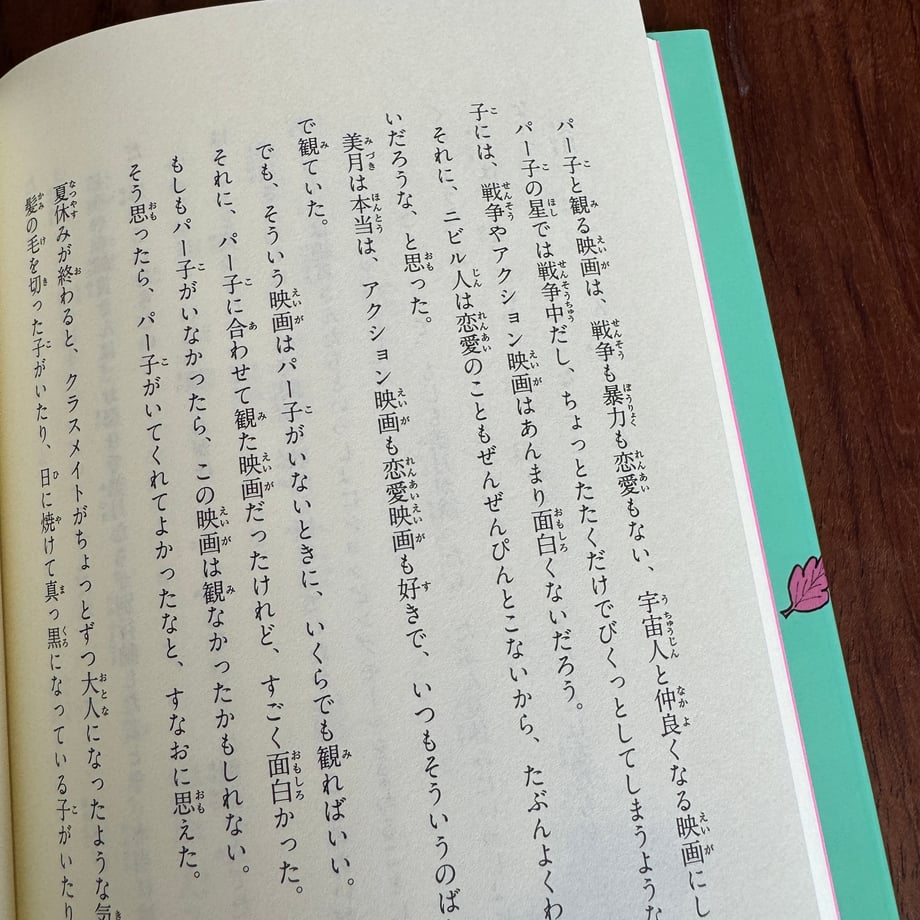 パー子と観る映画は、戦争も暴力も恋愛もない、宇宙人と仲良くなる映画にし
パー子の星では戦争中だし、ちょっとたたくだけでびくっとしてしまうような
子には、戦争やアクション映画はあんまり面白くないだろう。
それに、ニビル人は恋愛のこともぜんぜんぴんとこないから、たぶんよくわ
いだろうな、と思った。
美月は本当は、アクション映画も恋愛映画も好きで、いつもそういうのば
で観ていた。
でも、そういう映画はパー子がいないときに、いくらでも観ればいい。
それに、パー子に合わせて観た映画だったけれど、すごく面白かった。
もしもパー子がいなかったら、この映画は観なかったかもしれない。
そう思ったら、パー子がいてくれてよかったなと、すなおに思えた。
夏休みが終わると、クラスメイトがちょっとずつ大人になったような気
髪の毛を切った子がいたり、日に焼けて真っ黒になっている子がいたり